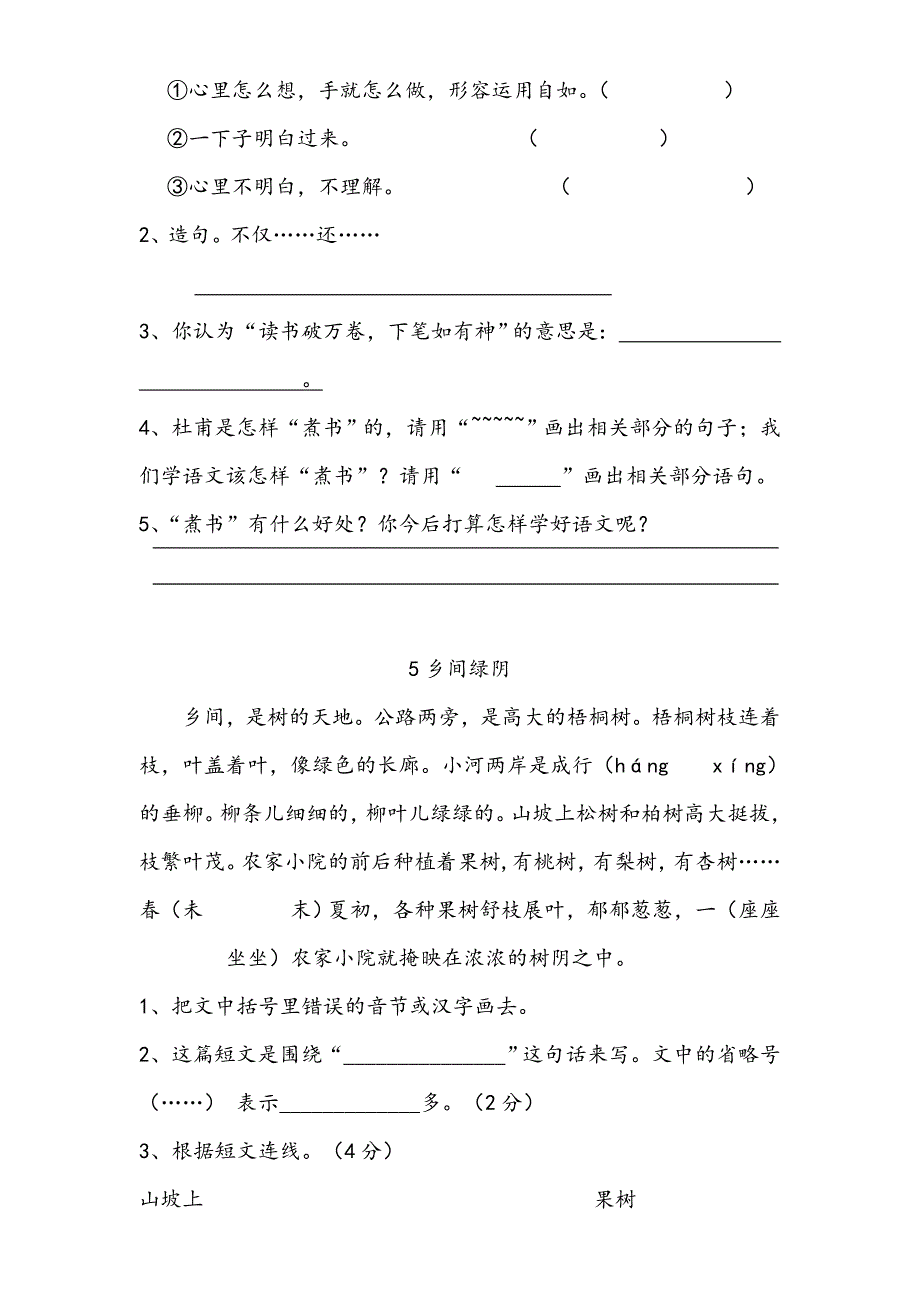 ①心里怎么想，手就怎么做，形容运用自如。（          ）
②一下子明白过来。                （          ）
③心里不明白，不理解。              （              ）
2、造句。不仅……还……
3、你认为“读书破万卷，下笔如有神”的意思是：______________
________________。
4、杜甫是怎样“煮书”的，请用“~~~~~”画出相关部分的句子；我
们学语文该怎样“煮书”？请用“  ______”画出相关部分语句。
5、“煮书”有什么好处？你今后打算怎样学好语文呢？
5 乡间绿阴
乡间，是树的天地。公路两旁，是高大的梧桐树。梧桐树枝连着
枝，叶盖着叶，像绿色的长廊。小河两岸是成行（háng    xíng）
的垂柳。柳条儿细细的，柳叶儿绿绿的。山坡上松树和柏树高大挺拔，
枝繁叶茂。农家小院的前后种植着果树，有桃树，有梨树，有杏树……
春（未        末）夏初，各种果树舒枝展叶，郁郁葱葱，一（座座
坐坐）农家小院就掩映在浓浓的树阴之中。
1、把文中括号里错误的音节或汉字画去。
2、这篇短文是围绕“_______________”这句话来写。文中的省略号
（……） 表示_____________多。（2分）
3、根据短文连线。（4分）
山坡上                                    果树